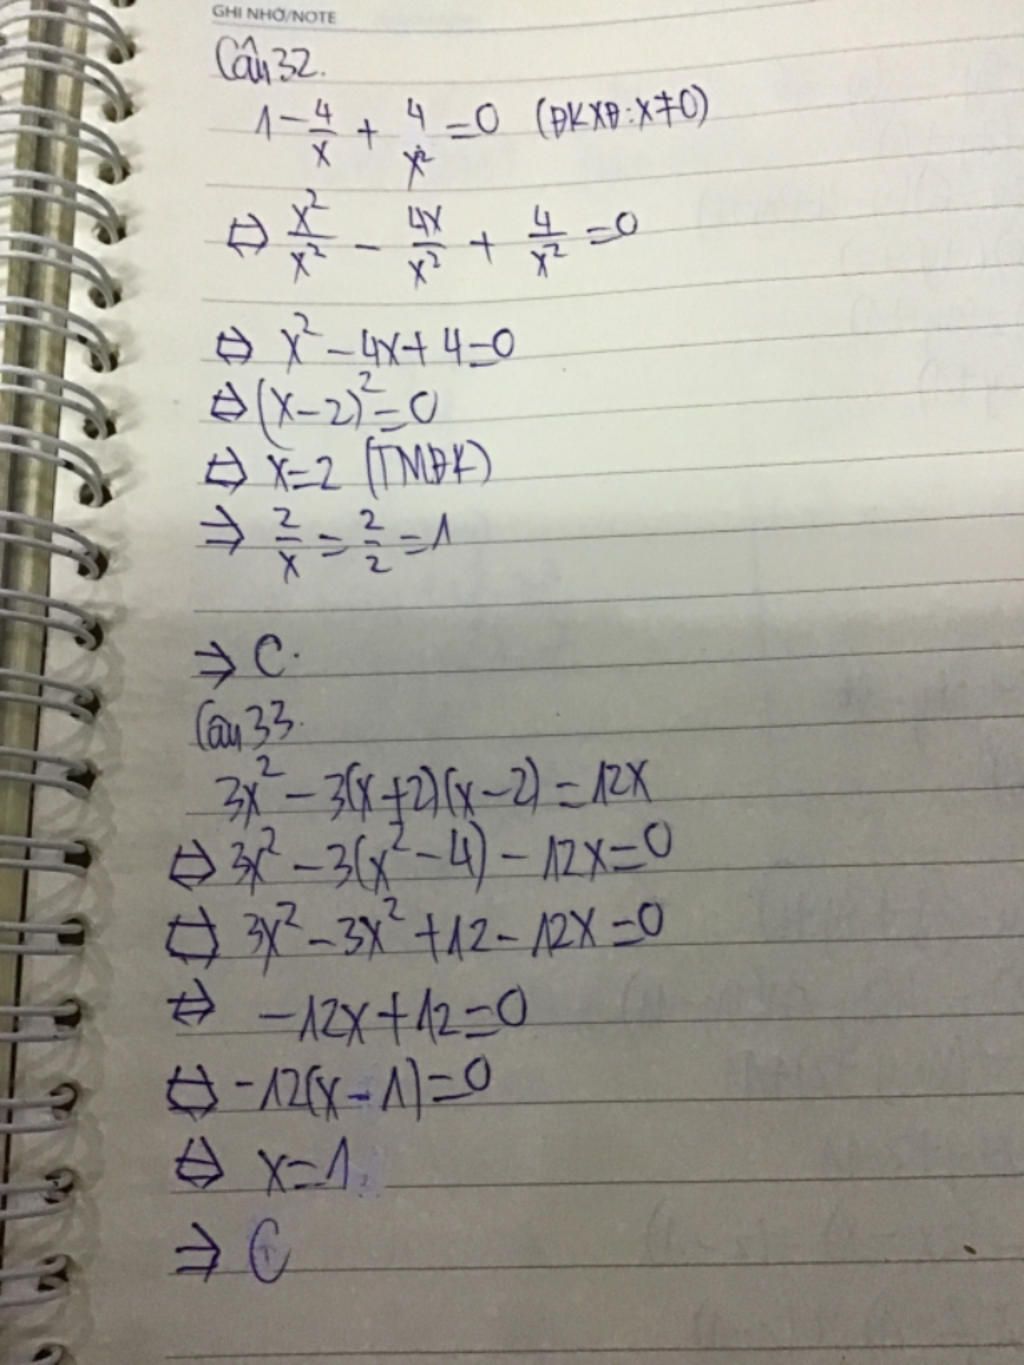 GHI NHỚ/NOTE
Câu 32.
1 - 4/x + 4/x² = 0 (ĐKXĐ: x ≠ 0)
⇔ x²/x² - 4x/x² + 4/x² = 0
⇔ x² - 4x + 4 = 0
⇔ (x - 2)² = 0
⇔ x = 2 (TMĐK)
⇒ 2/x = 2/2 = 1
⇒ C.
Câu 33.
3x² - 3(x + 2)(x - 2) = 12x
⇔ 3x² - 3(x² - 4) - 12x = 0
⇔ 3x² - 3x² + 12 - 12x = 0
⇔ -12x + 12 = 0
⇔ -12(x - 1) = 0
⇔ x = 1
⇒ C